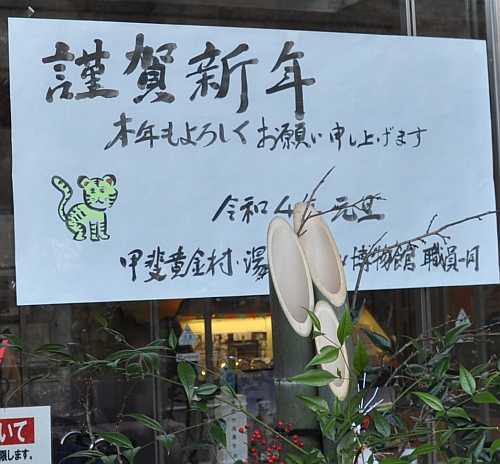 謹賀新年
本年もよろしくお願い申し上げます
令和4年 元旦
甲斐黄金村・湯 博物館 職員一同
いて
します。